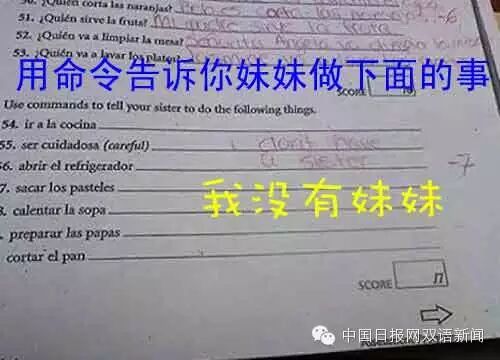 50. ¿Quién corta las naranjas?
51. ¿Quién sirve la fruta?
52. ¿Quién va a limpiar la mesa?
53. ¿Quién va a lavar los platos?
用命令告诉你妹妹做下面的事
SCORE
Use commands to tell your sister to do the following things.
54. ir a la cocina
55. ser cuidadosa (careful) i don't have
56. abrir el refrigerador a sister -7
7. sacar los pasteles
我没有妹妹
8. calentar la sopa
. preparar las papas
cortar el pan
SCORE 17
中国日报网双语新闻